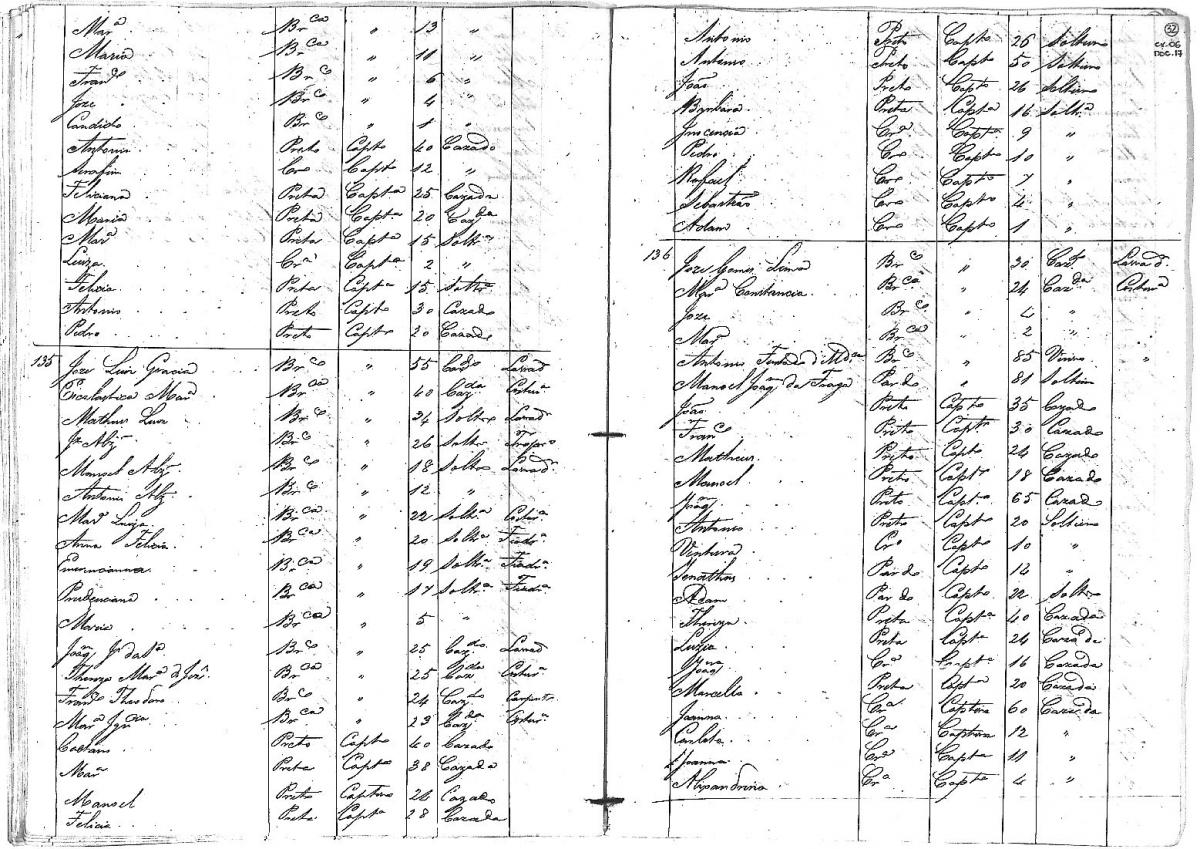 Mar.ª Br.ca " 13 "
Maria Br.ca " 11 "
Fran.co Br.co " 6 "
Joze Br.co " 4 "
Candido Br.co " 1 "
Antonio Preto Capt.o 40 Cazado
Serafim Cr.o Capt.o 12 "
Feliciana Preta Capt.a 25 Cazada
Maria Preta Capt.a 20 Caz.da
Mar.ª Preta Capt.a 15 Solt.ra
Luiza Cr.a Capt.a 2 "
Felicia Preta Capt.a 15 Solt.ra
Antonio Preto Capt.o 30 Cazado
Pedro Preto Capt.o 20 Cazado
135 Joze Luis Gracia Br.co " 55 Caz.do Lavrad.
Escolastica Mar.ª Br.ca " 40 Caz.da Costur.a
Matheus Luis Br.co " 34 Solt.ro Lavrad.
J.e Alz. Br.co " 26 Solt.ro Trop.ro
Manoel Alz. Br.co " 18 Solt.ro Lavrad.
Antonio Alz. Br.co " 12 "
Mar.ª Luiza Br.ca " 22 Solt.a Costur.a
Anna Felicia Br.ca " 20 Solt.a Fiad.a
Emerenciana Br.ca " 19 Solt.a Fiad.a
Prudenciana Br.ca " 17 Solt.a Fiad.a
Maria Br.ca " 5 "
Joaq.m Br.co " 25 Caz.do Lavrad.
Thereza Mar.ª Br.ca " 25 Caz.da Costur.a
Fran.co Theodoro Br.co " 24 Caz.do Carpent.o
Mar.ª Ign.cia Br.ca " 23 Caz.da Costur.a
Caetano Preto Capt.o 40 Cazado
Mar.ª Preta Capt.a 38 Cazada
Manoel Preto Captivo 26 Cazado
Felicia Preta Capt.a 28 Cazada
52
CX.06
DOC.17
Antonio Preto Capt.o 26 Solteiro
Antonio Preto Capt.o 50 Solteiro
João Preto Capt.o 26 Solteiro
Barbara Preta Capt.a 16 Solt.a
Innocencia Cr.a Capt.a 9 "
Pedro Cr.o Capt.o 10 "
Rafael Cr.o Capt.o 7 "
Sebastião Cr.o Capt.o 4 "
Adam Cr.o Capt.o 1 "
136 Joze Gomes Br.co " 30 Caz.do Lavrad.
Mar.ª Constancia Br.ca " 24 Caz.da Costur.a
Joze Br.co " 4 "
Mar.ª Br.ca " 2 "
Antonio Furtado d Md.ca Br.co " 85 Viuvo "
Manoel Joaq.m da Fraga Pardo " 81 Solteiro
João Preto Capt.o 35 Cazado
Fran.co Preto Capt.o 30 Cazado
Matheus Preto Capt.o 24 Cazado
Manoel Preto Capt.o 18 Cazado
Joaq.m Preto Capt.o 65 Cazado
Antonio Preto Capt.o 20 Solteiro
Ventura Cr.o Capt.o 10 "
Jonathas Pardo Capt.o 12 "
Adam Pardo Capt.o 22 Solt.ro
Thereza Preta Capt.a 40 Cazada
Luzia Preta Capt.a 24 Cazada
Joaq.na Cr.a Capt.a 16 Cazada
Marcella Preta Capt.a 20 Cazada
Joanna Cr.a Captiva 60 Cazada
Carlota Cr.a Captiva 12 "
Joanna Cr.a Capt.a 11 "
Alexandrina Cr.a Capt.a 4 "